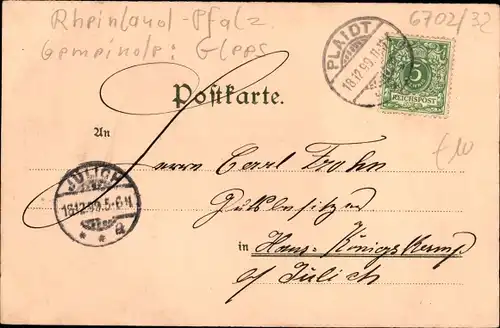 Rheinland-Pfalz
Gemeinde: Glees
6702/32
PLAIDT
18.12.99
5
REICHSPOST
Postkarte.
An
Herrn Carl Frohn
Gutsbesitzer
in Haus-Königskamp
b/ Jülich
JÜLICH
16.12.99.5-6N
* * a
£10